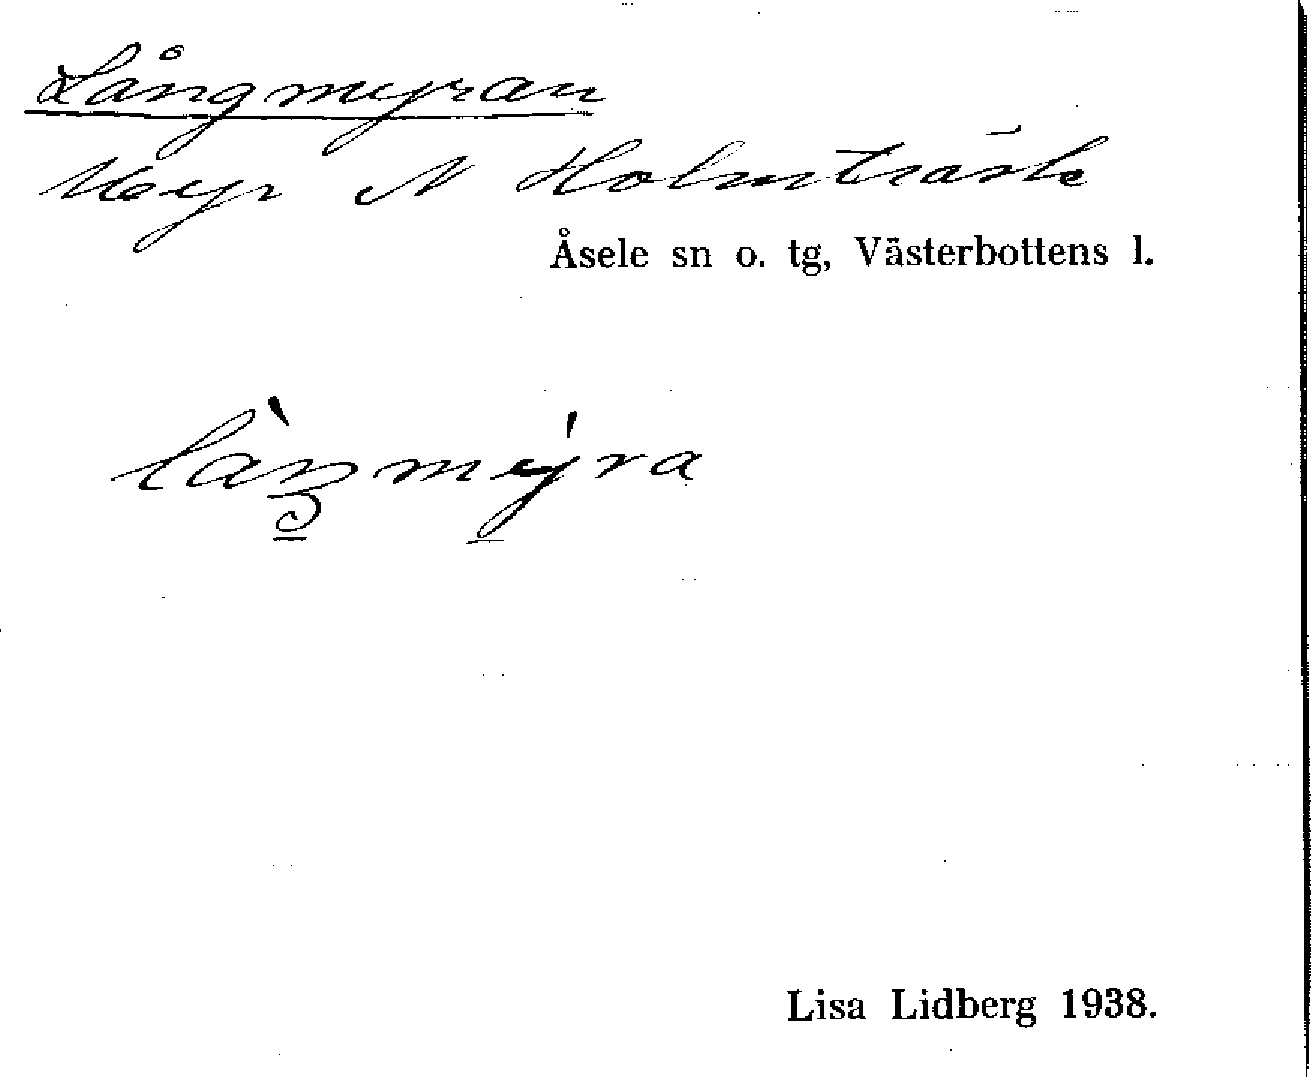 Långmyran
Myr N Holmträsk
Åsele sn o. tg, Västerbottens l.
làŋmýra
Lisa Lidberg 1938.